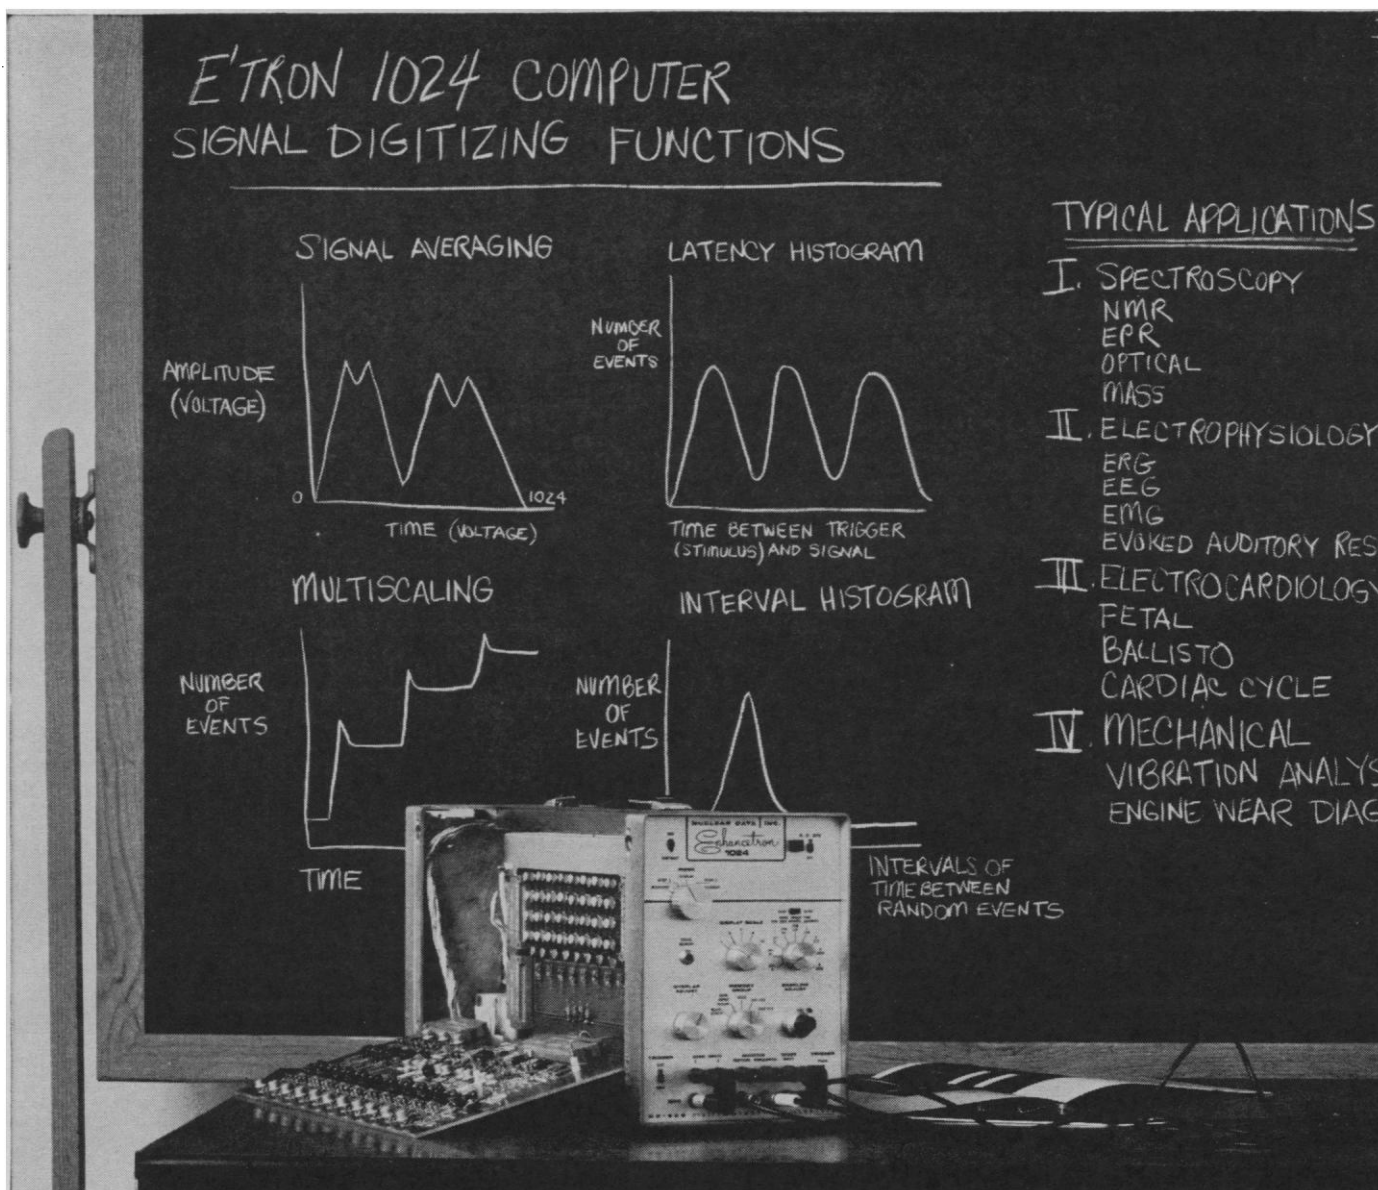 E'TRON 1024 COMPUTER
SIGNAL DIGITIZING FUNCTIONS
SIGNAL AVERAGING
AMPLITUDE
(VOLTAGE)
0
1024
TIME (VOLTAGE)
LATENCY HISTOGRAM
NUMBER
OF
EVENTS
TIME BETWEEN TRIGGER
(STIMULUS) AND SIGNAL
MULTISCALING
NUMBER
OF
EVENTS
TIME
INTERVAL HISTOGRAM
NUMBER
OF
EVENTS
INTERVALS OF
TIME BETWEEN
RANDOM EVENTS
TYPICAL APPLICATIONS
I. SPECTROSCOPY
NMR
EPR
OPTICAL
MASS
II. ELECTROPHYSIOLOGY
ERG
EEG
EMG
EVOKED AUDITORY RES
III. ELECTROCARDIOLOGY
FETAL
BALLISTO
CARDIAC CYCLE
IV. MECHANICAL
VIBRATION ANALYS
ENGINE WEAR DIAG
NUCLEAR DATA INC.
Enhancetron
1024
DISPLAY SCALE
MEMORY
GROUP
TRIGGER